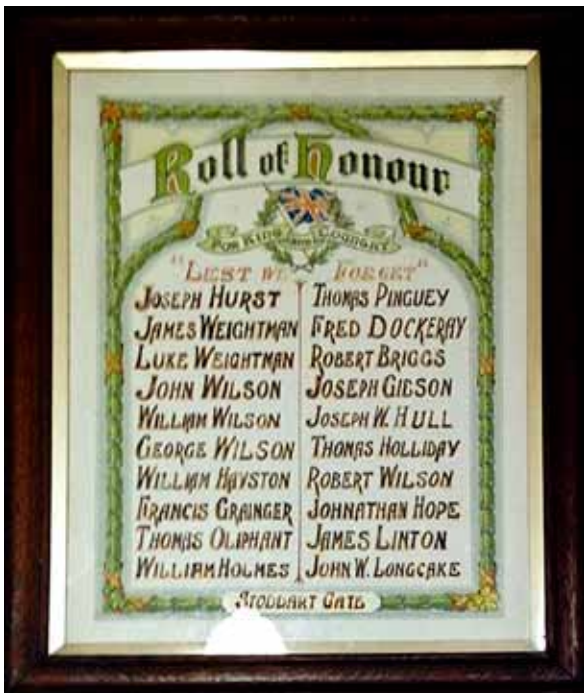 Roll of Honour
FOR KING AND COUNTRY
"LEST WE FORGET"
JOSEPH HURST
JAMES WEIGHTMAN
LUKE WEIGHTMAN
JOHN WILSON
WILLIAM WILSON
GEORGE WILSON
WILLIAM HAYSTON
FRANCIS GRAINGER
THOMAS OLIPHANT
WILLIAM HOLMES
THOMAS PINGUEY
FRED DOCKERAY
ROBERT BRIGGS
JOSEPH GIBSON
JOSEPH W. HULL
THOMAS HOLLIDAY
ROBERT WILSON
JOHNATHAN HOPE
JAMES LINTON
JOHN W. LONGCAKE
STODDART GATE